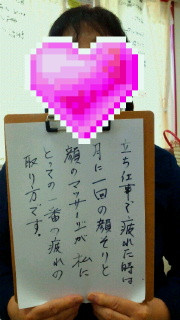 立ち仕事で疲れた時は
月に一回の顔そりと
顔のマッサージが私に
とっての一番の疲れの
取り方です。